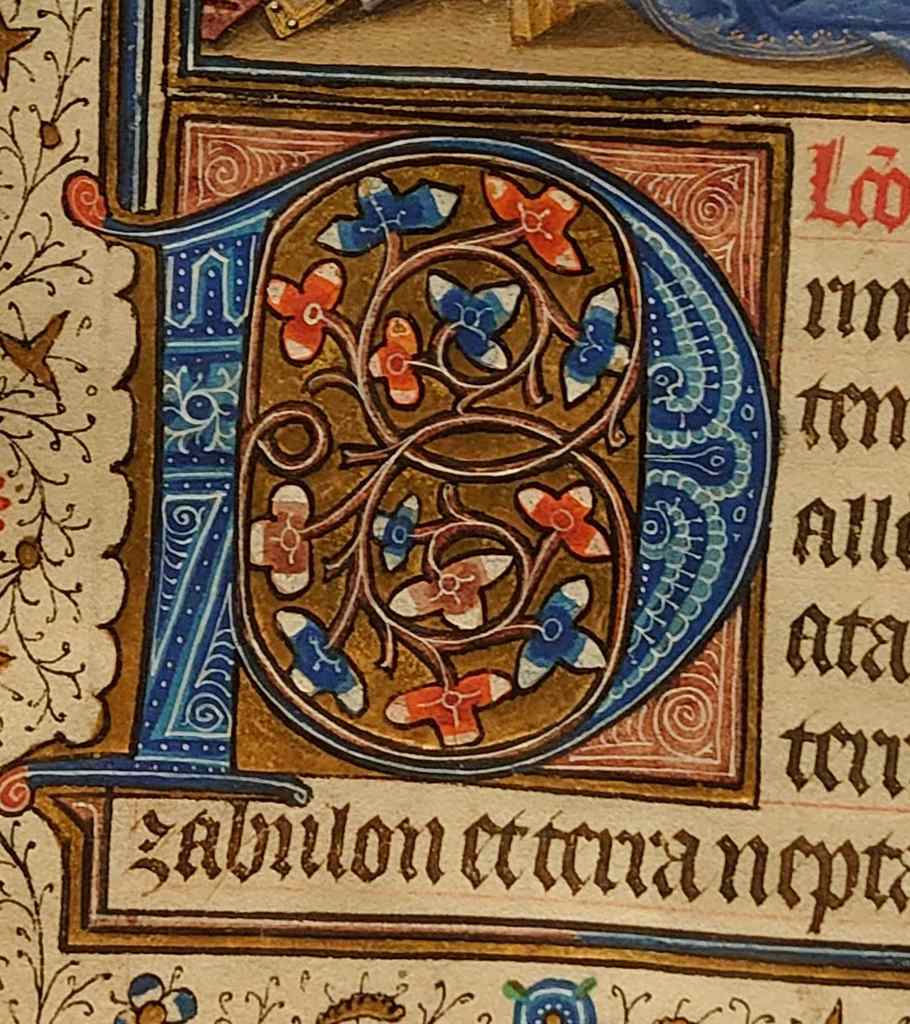 Lcō
P rim
tem
alle
ata
terr
zabulon et terra nepta